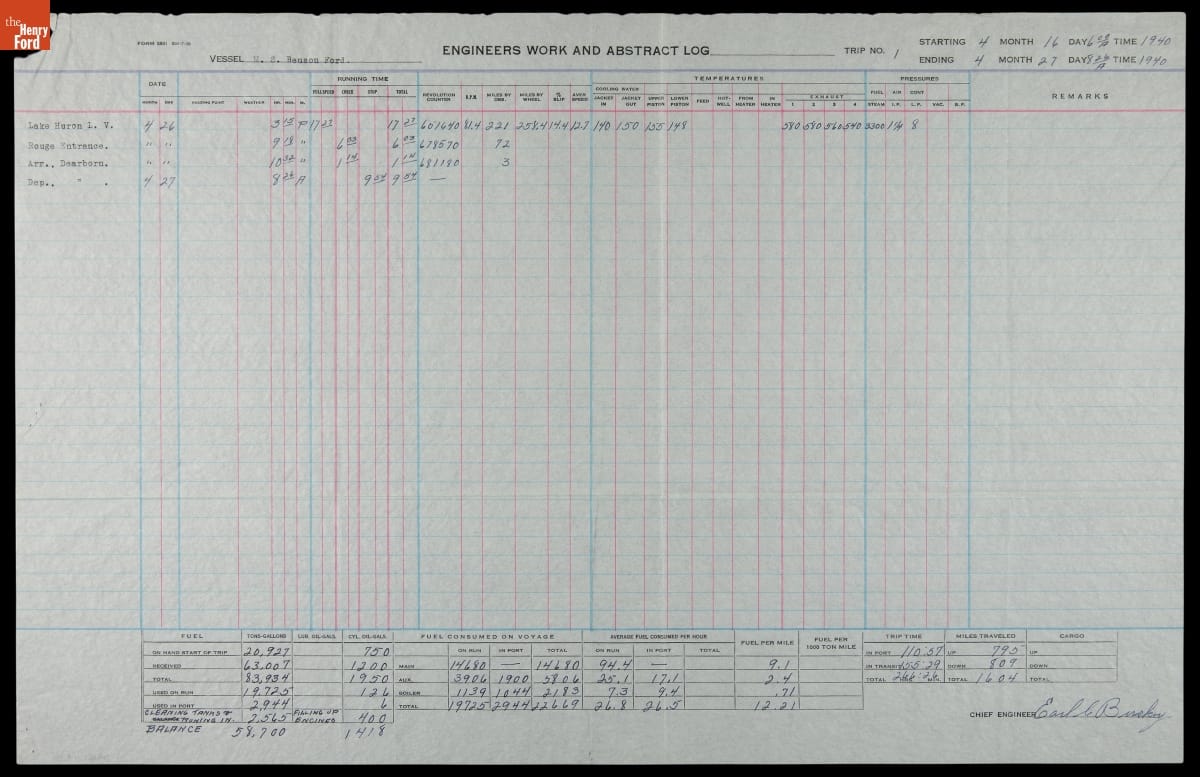 the Henry Ford
FORM 2881
ENGINEERS WORK AND ABSTRACT LOG
TRIP NO. 1
STARTING 4 MONTH 16 DAY 6 08 A TIME 1940
VESSEL M. S. Benson Ford.
ENDING 4 MONTH 27 DAY 8 26 A TIME 1940
DATE RUNNING TIME TEMPERATURES PRESSURES REMARKS
FULL SPEED CHECK STOP TOTAL COOLING WATER EXHAUST FUEL AIR CONT
MONTH DAY WEATHER HR. MIN. M. REVOLUTION COUNTER R.P.M. MILES BY OBS. MILES BY WHEEL % SLIP AVER SPEED JACKET IN JACKET OUT UPPER PISTON LOWER PISTON FEED HOT-WELL FROM HEATER IN HEATER 1 2 3 4 STEAM I.P. L.P. VAC. B.P.
Lake Huron L. V. 4 26 3 15 P 17 23 17 23 601640 81.4 221 258.4 14.4 12.7 140 150 155 148 580 580 560 540 3300 1 1/4 8
Rouge Entrance. " " 9 18 " 6 03 6 03 678570 72
Arr., Dearborn. " " 10 32 " 1 14 1 14 681190 3
Dep., " . 4 27 8 26 A 9 54 9 54 —
FUEL TONS-GALLONS LUB. OIL-GALS. CYL. OIL-GALS. FUEL CONSUMED ON VOYAGE AVERAGE FUEL CONSUMED PER HOUR FUEL PER MILE FUEL PER 1000 TON MILE TRIP TIME MILES TRAVELED CARGO
ON HAND START OF TRIP 20,927 750 ON RUN IN PORT TOTAL ON RUN IN PORT TOTAL IN PORT 110:57 UP 795 UP
RECEIVED 63,007 1200 MAIN 14680 — 14680 94.4 — 9.1 IN TRANSIT 155:29 DOWN 809 DOWN
TOTAL 83,934 1950 AUX. 3906 1900 5806 25.1 17.1 2.4 TOTAL 266:26 HRS. MIN. TOTAL 1604 TOTAL
USED ON RUN 19,725 126 BOILER 1139 1044 2183 7.3 9.4 .71
USED IN PORT 2,944 6 TOTAL 19725 2944 22669 26.8 26.5 12.21
CLEANING TANKS & TUNING IN. 2,565 FILLING UP ENGINES 400
BALANCE 58,700 1418
CHIEF ENGINEER Earl